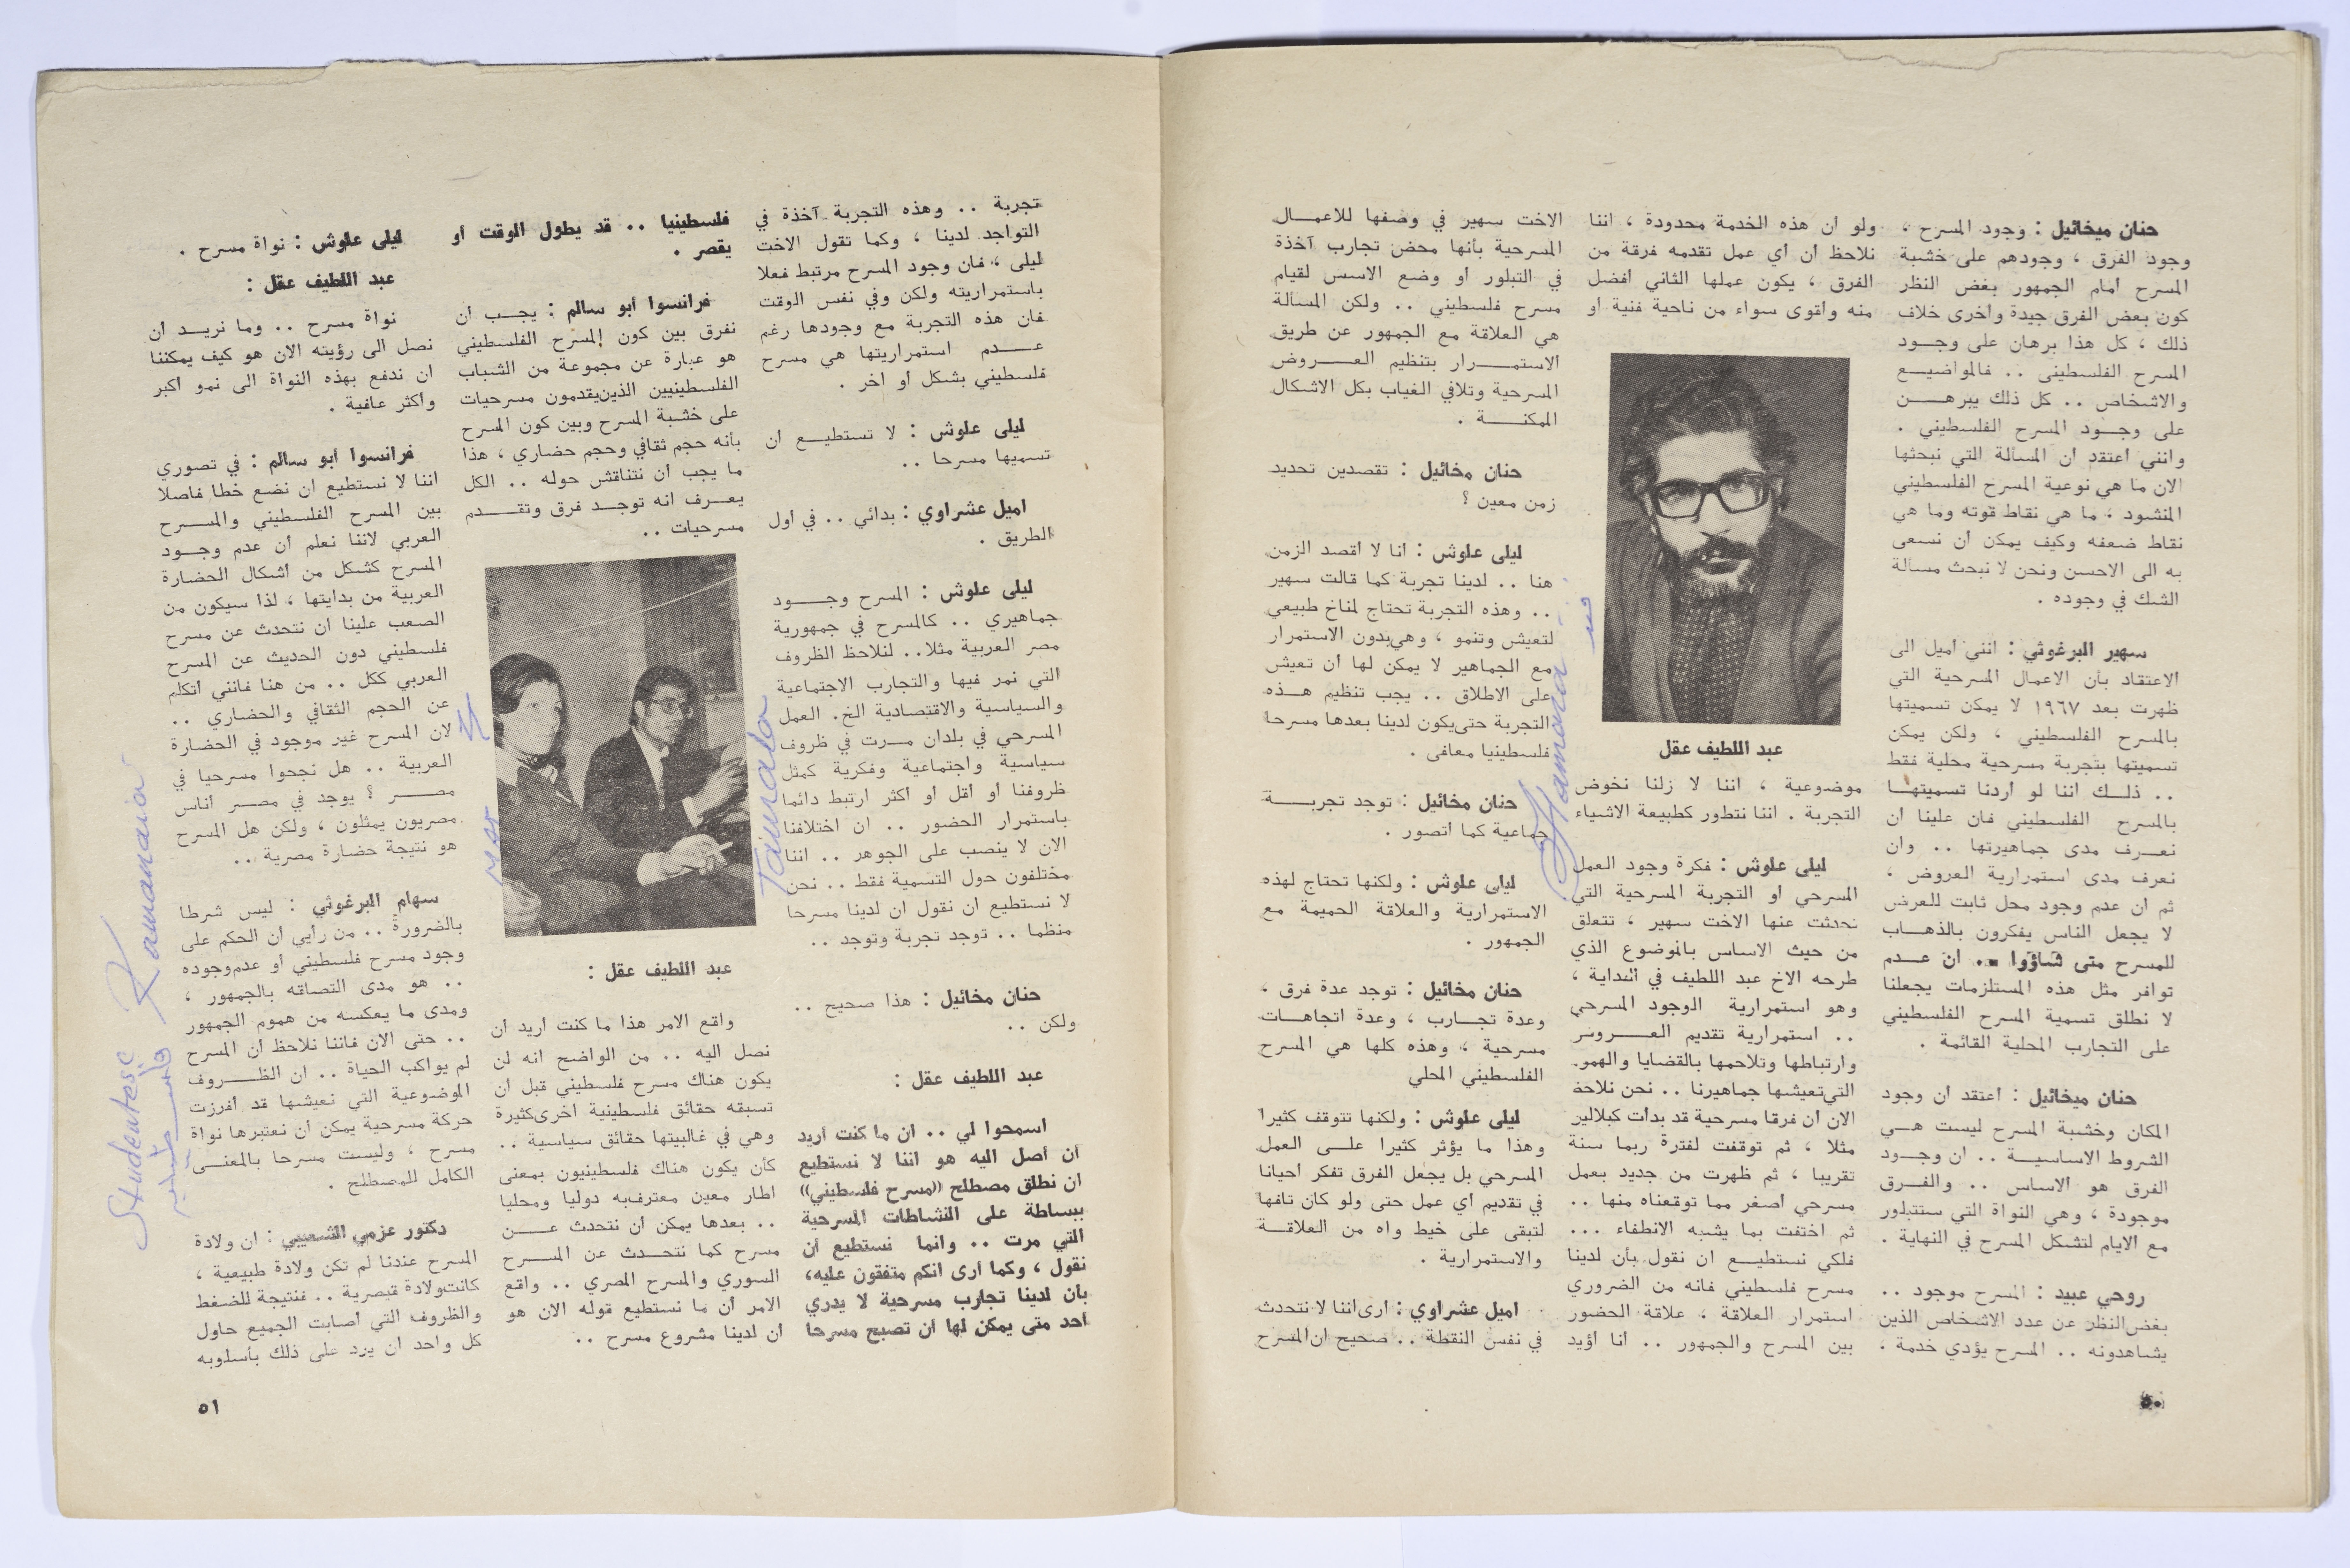 حنان ميخائيل : وجود المسرح ،
وجود الفرق ، وجودهم على خشبة
المسرح أمام الجمهور بغض النظر
كون بعض الفرق جيدة وأخرى خلاف
ذلك ، كل هذا برهان على وجـود
المسرح الفلسطينى .. فالمواضيـع
والاشخاص .. كل ذلك يبرهــن
على وجـود المسرح الفلسطيني .
وانني اعتقد ان المسألة التي نبحثها
الان ما هي نوعية المسرح الفلسطيني
المنشود ، ما هي نقاط قوته وما هي
نقاط ضعفه وكيف يمكن أن نسعى
به الى الاحسن ونحن لا نبحث مسألة
الشك في وجوده .
سهير البرغوثي : انني أميل الى
الاعتقاد بأن الاعمال المسرحية التي
ظهرت بعد ١٩٦٧ لا يمكن تسميتها
بالمسرح الفلسطيني ، ولكن يمكن
تسميتها بتجربة مسرحية محلية فقط
.. ذلـك اننا لو أردنا تسميتهـا
بالمسرح الفلسطيني فان علينا ان
نعـرف مدى جماهيرتها .. وان
نعرف مدى استمرارية العروض ،
ثم ان عدم وجود محل ثابت للعرض
لا يجعل الناس يفكرون بالذهـاب
للمسرح متى شاؤوا .. ان عـدم
توافر مثل هذه المستلزمات يجعلنا
لا نطلق تسمية المسرح الفلسطيني
على التجارب المحلية القائمة .
حنان ميخائيل : اعتقد ان وجود
المكان وخشبة المسرح ليست هـي
الشروط الاساسيـة .. ان وجـود
الفرق هو الاساس .. والفـرق
موجودة ، وهي النواة التي ستتبلور
مع الايام لتشكل المسرح في النهاية .
روحي عبيد : المسرح موجود ..
بغض النظر عن عدد الاشخاص الذين
يشاهدونه .. المسرح يؤدي خدمة .
ولو ان هذه الخدمة محدودة ، اننا
نلاحظ ان أي عمل تقدمه فرقة من
الفرق ، يكون عملها الثاني أفضل
منه وأقوى سواء من ناحية فنية أو
عبد اللطيف عقل
موضوعية ، اننا لا زلنا نخوض
التجربة . اننا نتطور كطبيعة الاشياء
ليلى علوش : فكرة وجود العمل
المسرحي أو التجربة المسرحية التي
تحدثت عنها الاخت سهير ، تتعلق
من حيث الاساس بالموضوع الذي
طرحه الاخ عبد اللطيف في البداية ،
وهو استمرارية الوجود المسرحي
.. استمرارية تقديم العــروض
وارتباطها وتلاحمها بالقضايا والهموم
التي تعيشها جماهيرنا .. نحن نلاحظ
الان ان فرقا مسرحية قد بدأت كبلالين
مثلا ، ثم توقفت لفترة ربما سنة
تقريبا ، ثم ظهرت من جديد بعمل
مسرحي اصغر مما توقعناه منها ..
ثم اختفت بما يشبه الانطفاء ...
فلكي نستطيـع ان نقول بأن لدينا
مسرح فلسطيني فانه من الضروري
استمرار العلاقة ، علاقة الحضور
بين المسرح والجمهور .. انا أؤيد
الاخت سهير في وصفها للاعمـال
المسرحية بأنها محض تجارب آخذة
في التبلور أو وضع الاسس لقيام
مسرح فلسطيني .. ولكن المسألة
هي العلاقة مع الجمهور عن طريق
الاستمــرار بتنظيم العــروض
المسرحية وتلافي الغياب بكل الاشكال
الممكنــة .
حنان مخائيل : تقصدين تحديد
زمن معين ؟
ليلى علوش : أنا لا أقصد الزمن
هنا .. لدينا تجربة كما قالت سهير
.. وهذه التجربة تحتاج لمناخ طبيعي
لتعيش وتنمو ، وهي بدون الاستمرار
مع الجماهير لا يمكن لها ان تعيش
على الاطلاق .. يجب تنظيم هـذه
التجربة حتى يكون لدينا بعدها مسرحا
فلسطينيا معافى .
حنان مخائيل : توجد تجربــة
جماعية كما أتصور .
ليلى علوش : ولكنها تحتاج لهذه
الاستمرارية والعلاقة الحميمة مع
الجمهور .
حنان مخائيل : توجد عدة فرق ،
وعدة تجـارب ، وعدة اتجاهـات
مسرحية ، وهذه كلها هي المسرح
الفلسطيني المحلي
ليلى علوش : ولكنها تتوقف كثيرا
وهذا ما يؤثر كثيرا علـى العمل
المسرحي بل يجعل الفرق تفكر احيانا
في تقديم أي عمل حتى ولو كان تافها
لتبقى على خيط واه من العلاقـة
والاستمرارية .
اميل عشراوي : أرى اننا لا نتحدث
في نفس النقطة .. صحيح ان المسرح
Hamada
٥٠
تجربة .. وهذه التجربة آخذة في
التواجد لدينا ، وكما تقول الاخت
ليلى ، فان وجود المسرح مرتبط فعلا
باستمراريته ولكن وفي نفس الوقت
فان هذه التجربة مع وجودها رغم
عــدم استمراريتها هي مسرح
فلسطيني بشكل أو آخر .
ليلى علوش : لا تستطيـع ان
تسميها مسرحا ..
اميل عشراوي : بدائي .. في أول
الطريق .
ليلى علوش : المسرح وجــود
جماهيري .. كالمسرح في جمهورية
مصر العربية مثلا.. لنلاحظ الظروف
التي نمر فيها والتجارب الاجتماعية
والسياسية والاقتصادية الخ. العمل
المسرحي في بلدان مـرت في ظروف
سياسية واجتماعية وفكرية كمثل
ظروفنا أو أقل أو أكثر ارتبط دائما
باستمرار الحضور .. ان اختلافنا
الان لا ينصب على الجوهر .. اننا
مختلفون حول التسمية فقط .. نحن
لا نستطيع ان نقول ان لدينا مسرحا
منظما .. توجد تجربة وتوجد ..
حنان مخائيل : هذا صحيح ..
ولكن ..
عبد اللطيف عقل :
اسمحوا لي .. ان ما كنت أريد
أن أصل اليه هو اننا لا نستطيع
ان نطلق مصطلح «مسرح فلسطيني»
ببساطة على النشاطات المسرحية
التي مرت .. وانما نستطيع أن
نقول ، وكما أرى انكم متفقون عليه،
بأن لدينا تجارب مسرحية لا يدري
أحد متى يمكن لها أن تصبح مسرحا
فلسطينيا .. قد يطول الوقت أو
يقصر .
فرانسوا أبو سالم : يجـب ان
نفرق بين كون المسرح الفلسطيني
هو عبارة عن مجموعة من الشباب
الفلسطينيين الذين يقدمون مسرحيات
على خشبة المسرح وبين كون المسرح
بأنه حجم ثقافي وحجم حضاري ، هذا
ما يجب ان نتناقش حوله .. الكل
يعـرف انه توجـد فرق وتقـدم
مسرحيات ..
عبد اللطيف عقل :
واقع الامر هذا ما كنت أريد ان
نصل اليه .. من الواضح انه لن
يكون هناك مسرح فلسطيني قبل ان
تسبقه حقائق فلسطينية أخرى كثيرة
وهي في غالبيتها حقائق سياسية ..
كأن يكون هناك فلسطينيون بمعنى
اطار معين معترف به دوليا ومحليا
.. بعدها يمكن ان نتحدث عــن
مسرح كما نتحـدث عن المسـرح
السوري والمسرح المصري .. واقع
الامر أن ما نستطيع قوله الان هو
ان لدينا مشروع مسرح ..
Tamada
ليلى علوش : نواة مسرح .
عبد اللطيف عقل :
نواة مسرح .. وما نريـد ان
نصل الى رؤيته الان هو كيف يمكننا
ان ندفع بهذه النواة الى نمو أكبر
وأكثر عافية .
فرانسوا أبو سالم : في تصوري
اننا لا نستطيع ان نضع خطا فاصلا
بين المسرح الفلسطيني والمسـرح
العربي لاننا نعلم أن عدم وجـود
المسرح كشكل من أشكال الحضارة
العربية من بدايتها ، لذا سيكون من
الصعب علينا ان نتحدث عن مسرح
فلسطيني دون الحديث عن المسرح
العربي ككل .. من هنا فانني أتكلم
عن الحجم الثقافي والحضاري ..
لان المسرح غير موجود في الحضارة
العربية .. هل نجحوا مسرحيا في
مصــر ؟ يوجد في مصـر أناس
مصريون يمثلون ، ولكن هل المسرح
هو نتيجة حضارة مصرية ..
سهام البرغوثي : ليس شرطا
بالضرورة .. من رأيي ان الحكم على
وجود مسرح فلسطيني أو عدم وجوده
.. هو مدى التصاقه بالجمهور ،
ومدى ما يعكسه من هموم الجمهور
.. حتى الان فاننا نلاحظ أن المسرح
لم يواكب الحياة .. ان الظـروف
الموضوعية التي نعيشها قد أفرزت
حركة مسرحية يمكن أن نعتبرها نواة
مسرح ، وليست مسرحا بالمعنـى
الكامل للمصطلح .
دكتور عزمي الشعيبي : ان ولادة
المسرح عندنا لم تكن ولادة طبيعية ،
كانت ولادة قيصرية .. فنتيجة للضغط
والظروف التي أصابت الجميع حاول
كل واحد ان يرد على ذلك بأسلوبه
Studentesc Romanaia
٥١